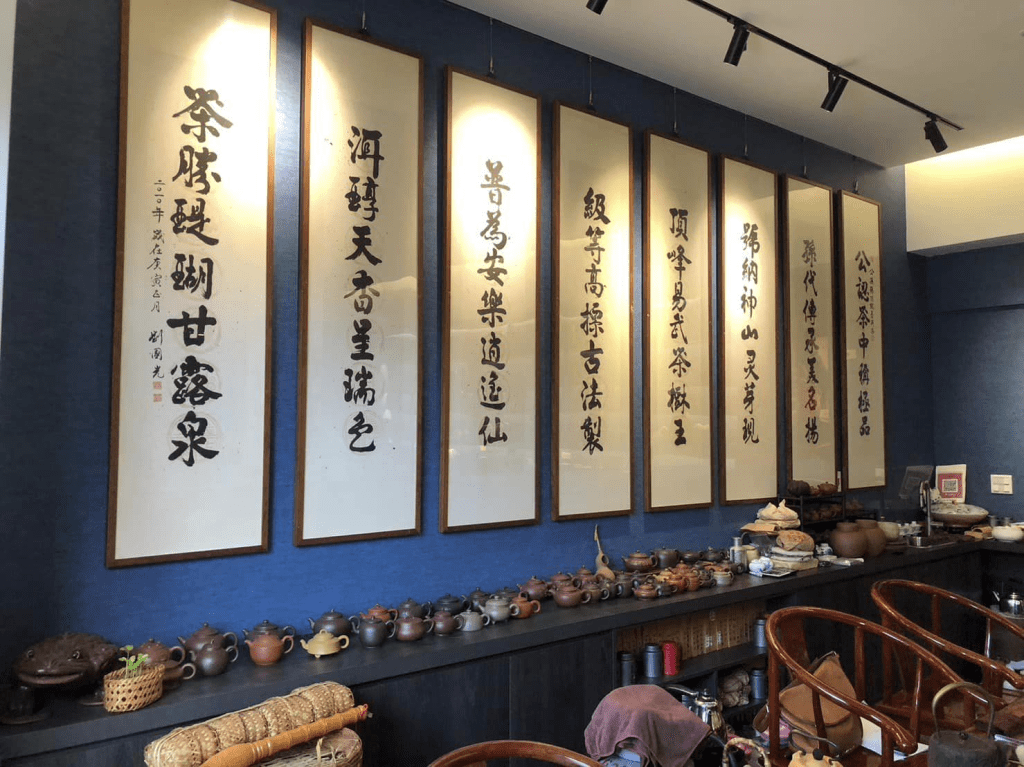 公認茶中稱極品
孫代傳承美名揚
號納神山灵芽現
頂峰易武茶樹王
級等高揉古法製
普為安樂逍遙仙
洱醇天香呈瑞色
茶勝瑅瑚甘露泉
二〇一〇年 歲在庚寅正月 劉國光